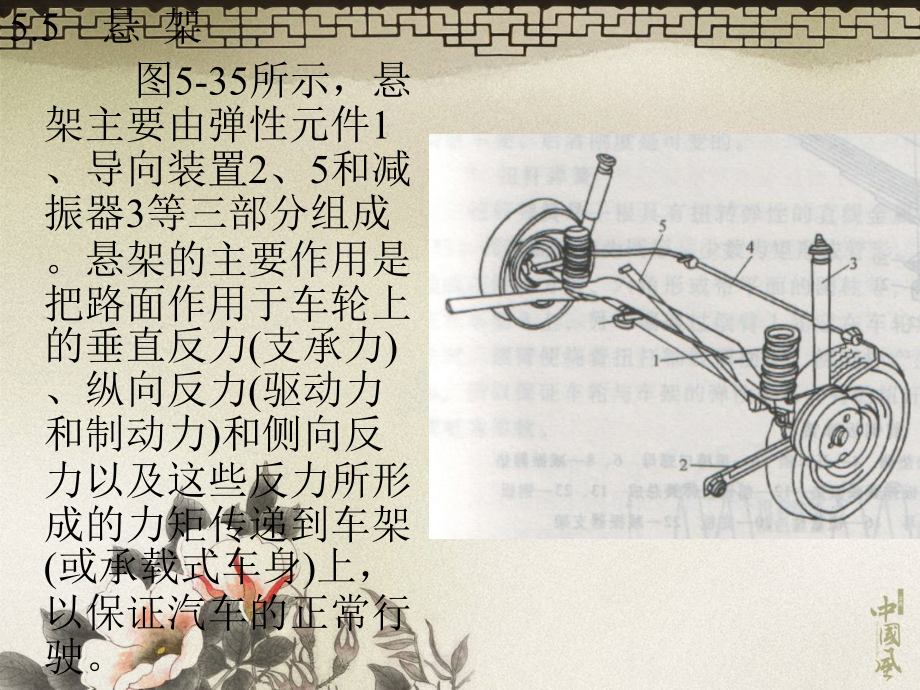 5.5 悬 架
图5-35所示，悬
架主要由弹性元件1
、导向装置2、5和减
振器3等三部分组成
。悬架的主要作用是
把路面作用于车轮上
的垂直反力(支承力)
、纵向反力(驱动力
和制动力)和侧向反
力以及这些反力所形
成的力矩传递到车架
(或承载式车身)上，
以保证汽车的正常行
驶。
5
4
3
1
2
中國風